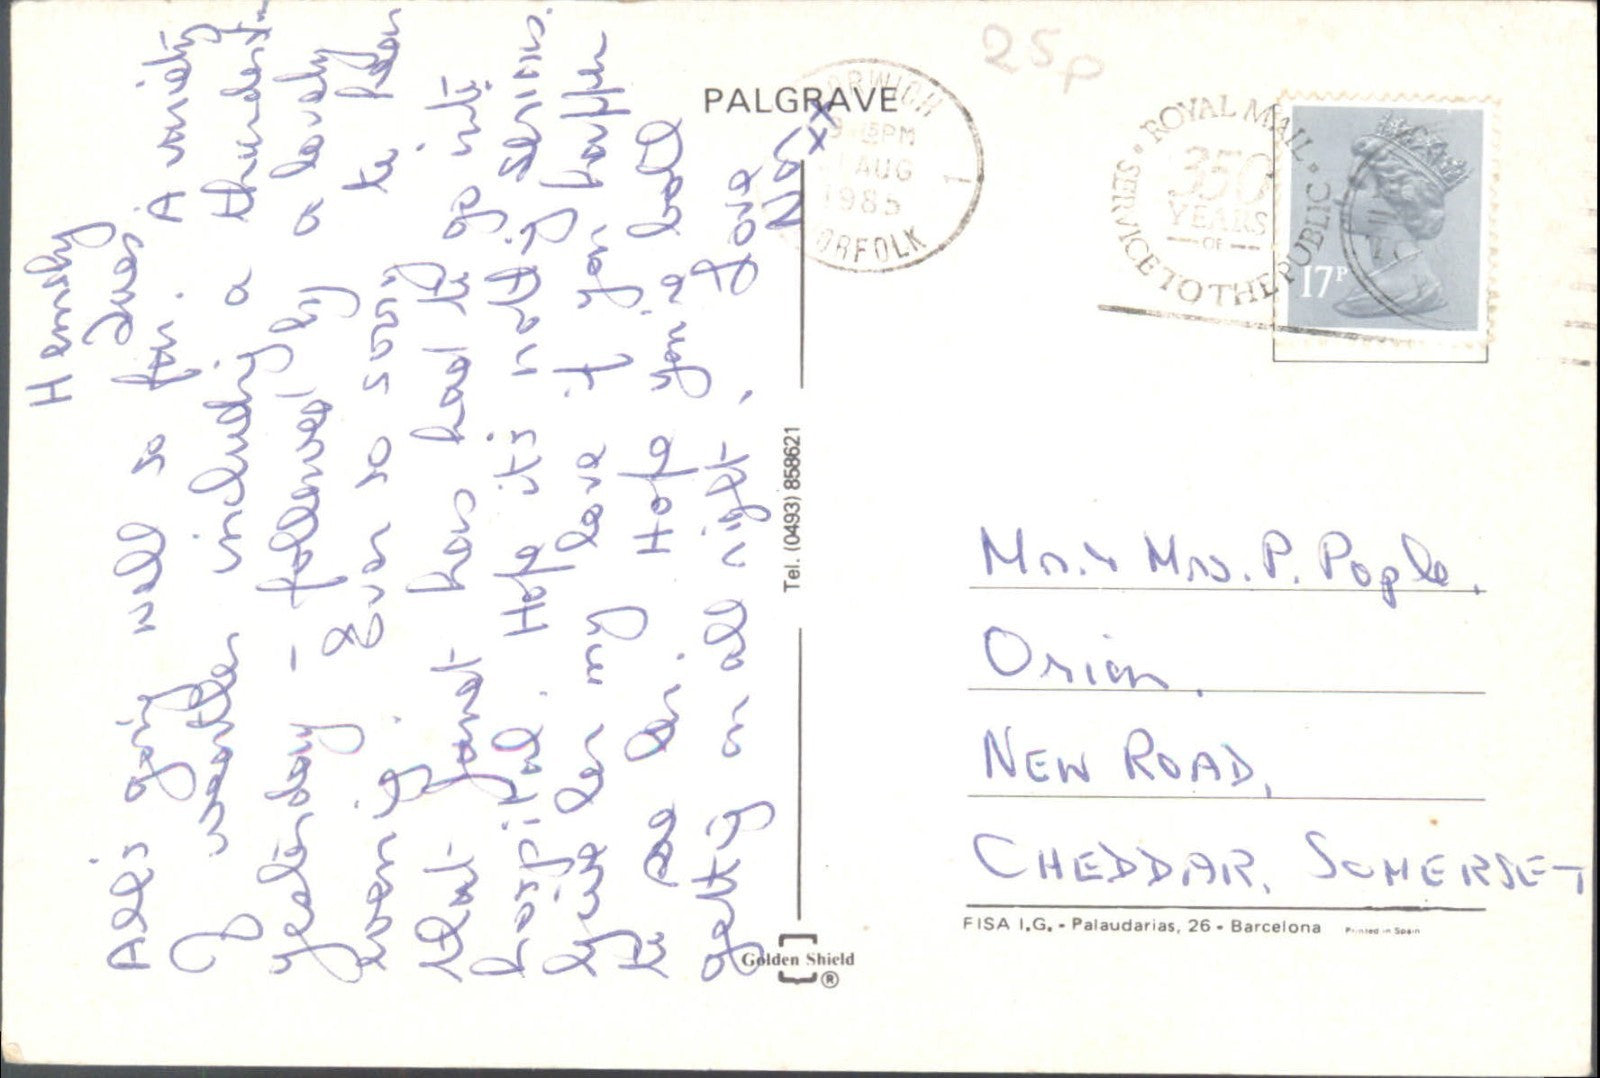 Hemsby
Tues
All's going well so far. A variety
of weather including a thunderstm
yesterday - followed by a lovely
evening. Ever so sorry to hear
that Janet has had to go into
hospital. Hope its nothing serious.
Give her my love if you happen
to see her. Hope you're both
getting on all right,
Love
xx
PALGRAVE
Tel. (0493) 858621
Golden Shield
®
25p
NORWICH
PM
AUG
1985
NORFOLK
1
ROYAL MAIL
350
YEARS
OF
SERVICE TO THE PUBLIC
17P
Mr. & Mrs. P. Pople,
Orion,
NEW ROAD,
CHEDDAR, SOMERSET
FISA I.G. - Palaudarias, 26 - Barcelona Printed in Spain